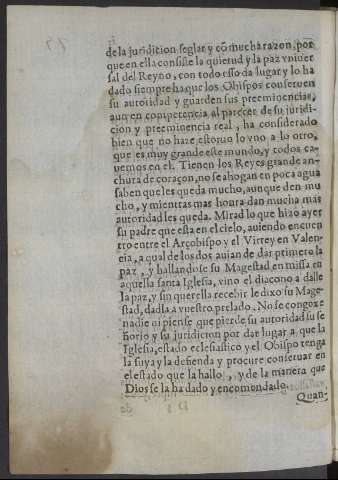 de la juridicion seglar y cõ mucha razon, por
que en ella consiste la quietud y la paz vniuer
sal del Reyno, con todo esso da lugar y lo ha
dado siempre ha que los Obispos conseruen
su autoridad y guarden sus preeminencias,
aun en competencia al parecer de su juridi-
cion y preeminencia real, ha considerado
bien que no haze estoruo lo vno a lo otro,
que es muy grande este mundo, y todos ca-
uemos en el. Tienen los Reyes grande an-
chura de coraçon, no se ahogan en poca agua
saben que les queda mucho, aunque den mu
cho, y mientras mas honra dan mucha mas
autoridad les queda. Mirad lo que hizo ayer
su padre que esta en el cielo, auiendo encuen
tro entre el Arçobispo y el Virrey en Valen-
cia, a qual de los dos auian de dar primero la
paz, y hallandose su Magestad en missa en
aquella santa Iglesia, vino el diacono a dalle
la paz, y sin querella recebir le dixo su Mage-
stad, dadla a vuestro prelado. No se congoxe
nadie ni piense que pierde su autoridad su se
ñorio y su juridicion por dar lugar a que la
Iglesia, estado ecclesiastico y el Obispo tenga
la suya y la defienda y procure conseruar en
el estado que la hallo, y de la manera que
Dios se la ha dado y encomendado.
Quan-